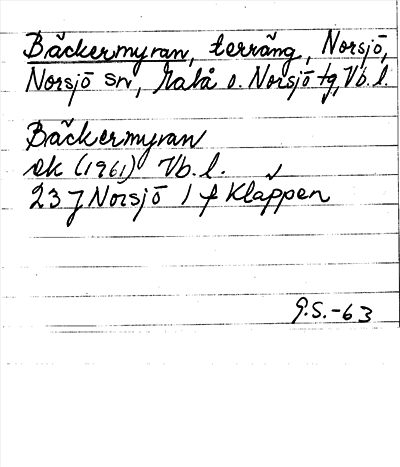 Bäckermyran, terräng, Norsjö,
Norsjö sn, Malå o. Norsjö tg, Vb.l.
Bäckermyran
ek (1961) Vb.l.
23 J Norsjö 1 f Kläppen
G.S.-63